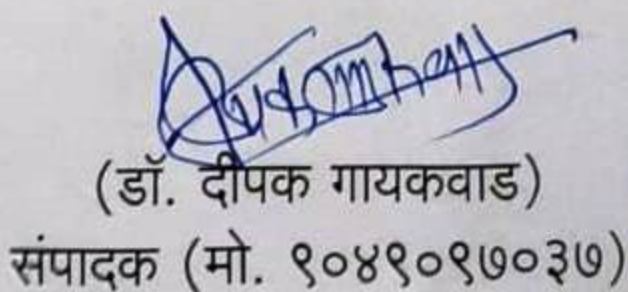 (डॉ. दीपक गायकवाड)
संपादक (मो. ९०४९०९७०३७)